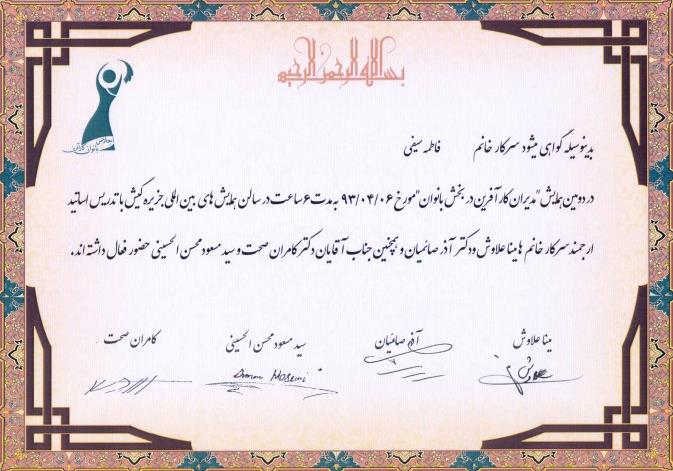 بسم الله الرحمن الرحیم
اجلاس بانوان کارآفرین
بدینوسیله گواهی میشود سرکار خانم فاطمه سیفی
در دومین همایش "مدیران کارآفرین در بخش بانوان" مورخ ۹۳/۰۴/۰۶ به مدت ۶ ساعت در سالن همایش های بین المللی جزیره کیش با تدریس اساتید
ارجمند سرکار خانم ها مینا علاوش و دکتر آذر صائمیان و همچنین جناب آقایان دکتر کامران صحت و سید مسعود محسن الحسینی حضور فعال داشته اند.
مینا علاوش آذر صائمیان سید مسعود محسن الحسینی کامران صحت